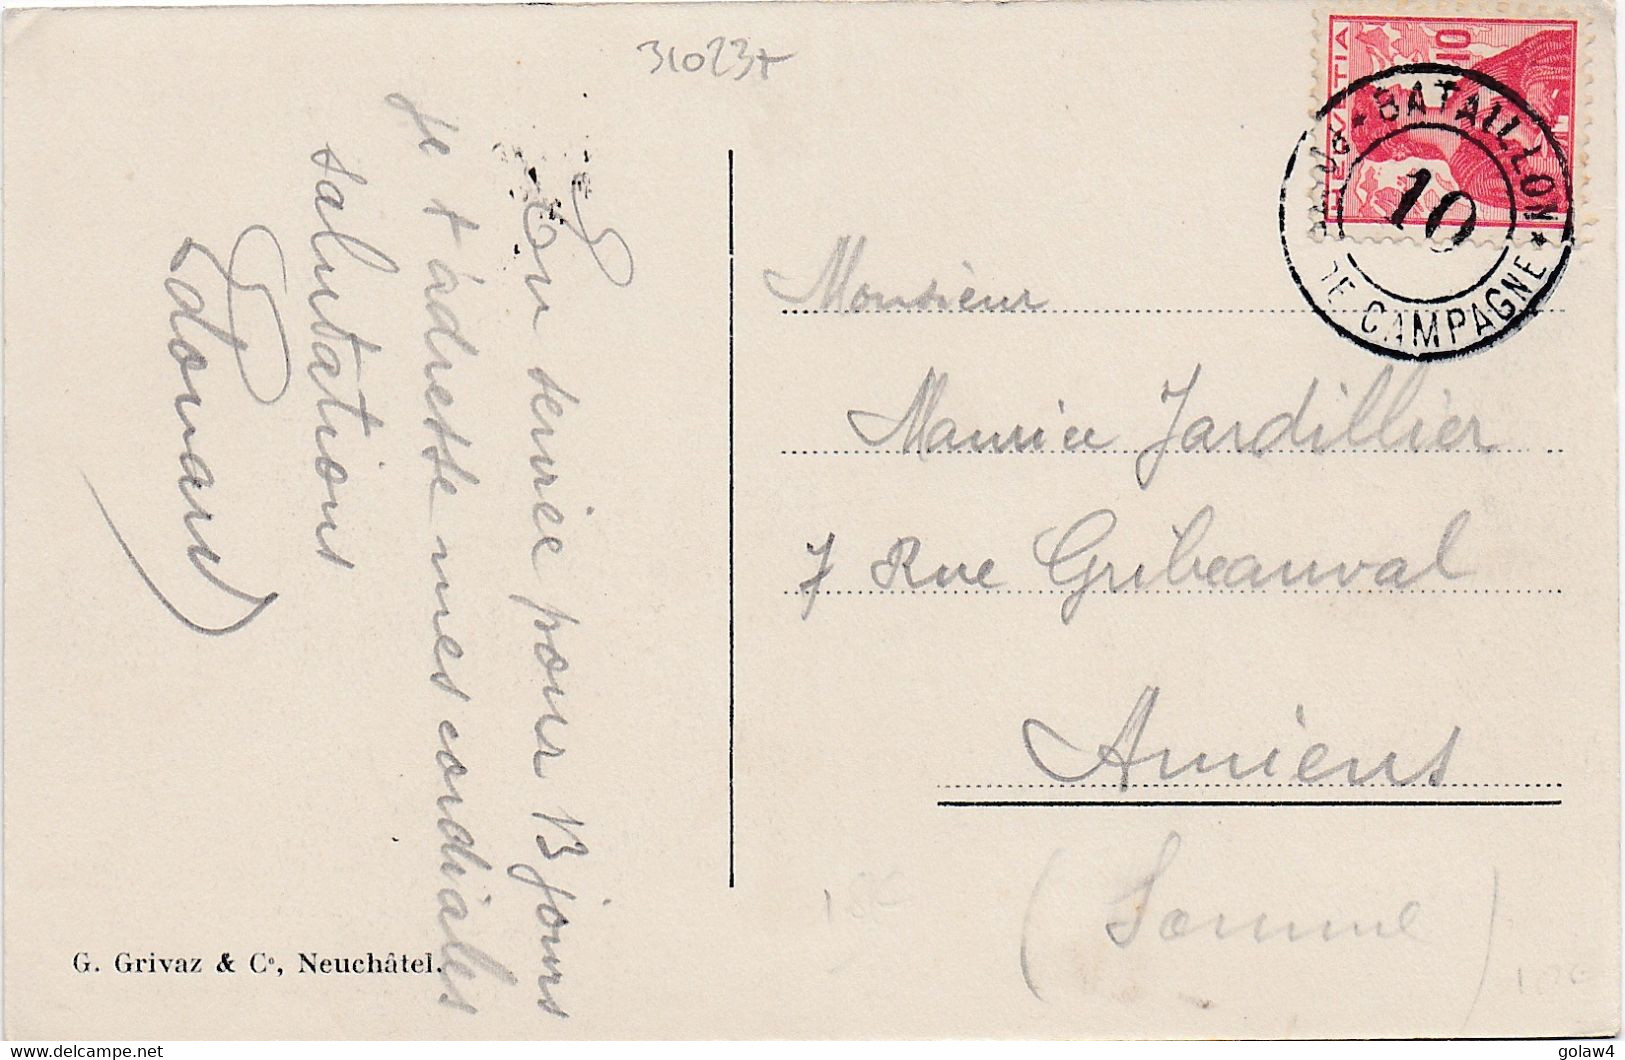 31023+
En service pour 13 jours
je t'adresse mes cordiales
salutations
Edouard
HELVETIA
10
* BATAILLON *
10
DE CAMPAGNE
Monsieur
Maurice Jardillier
7 Rue Gribeauval
Amiens
(Somme)
G. Grivaz & Cº, Neuchâtel.
www.delcampe.net
golaw4